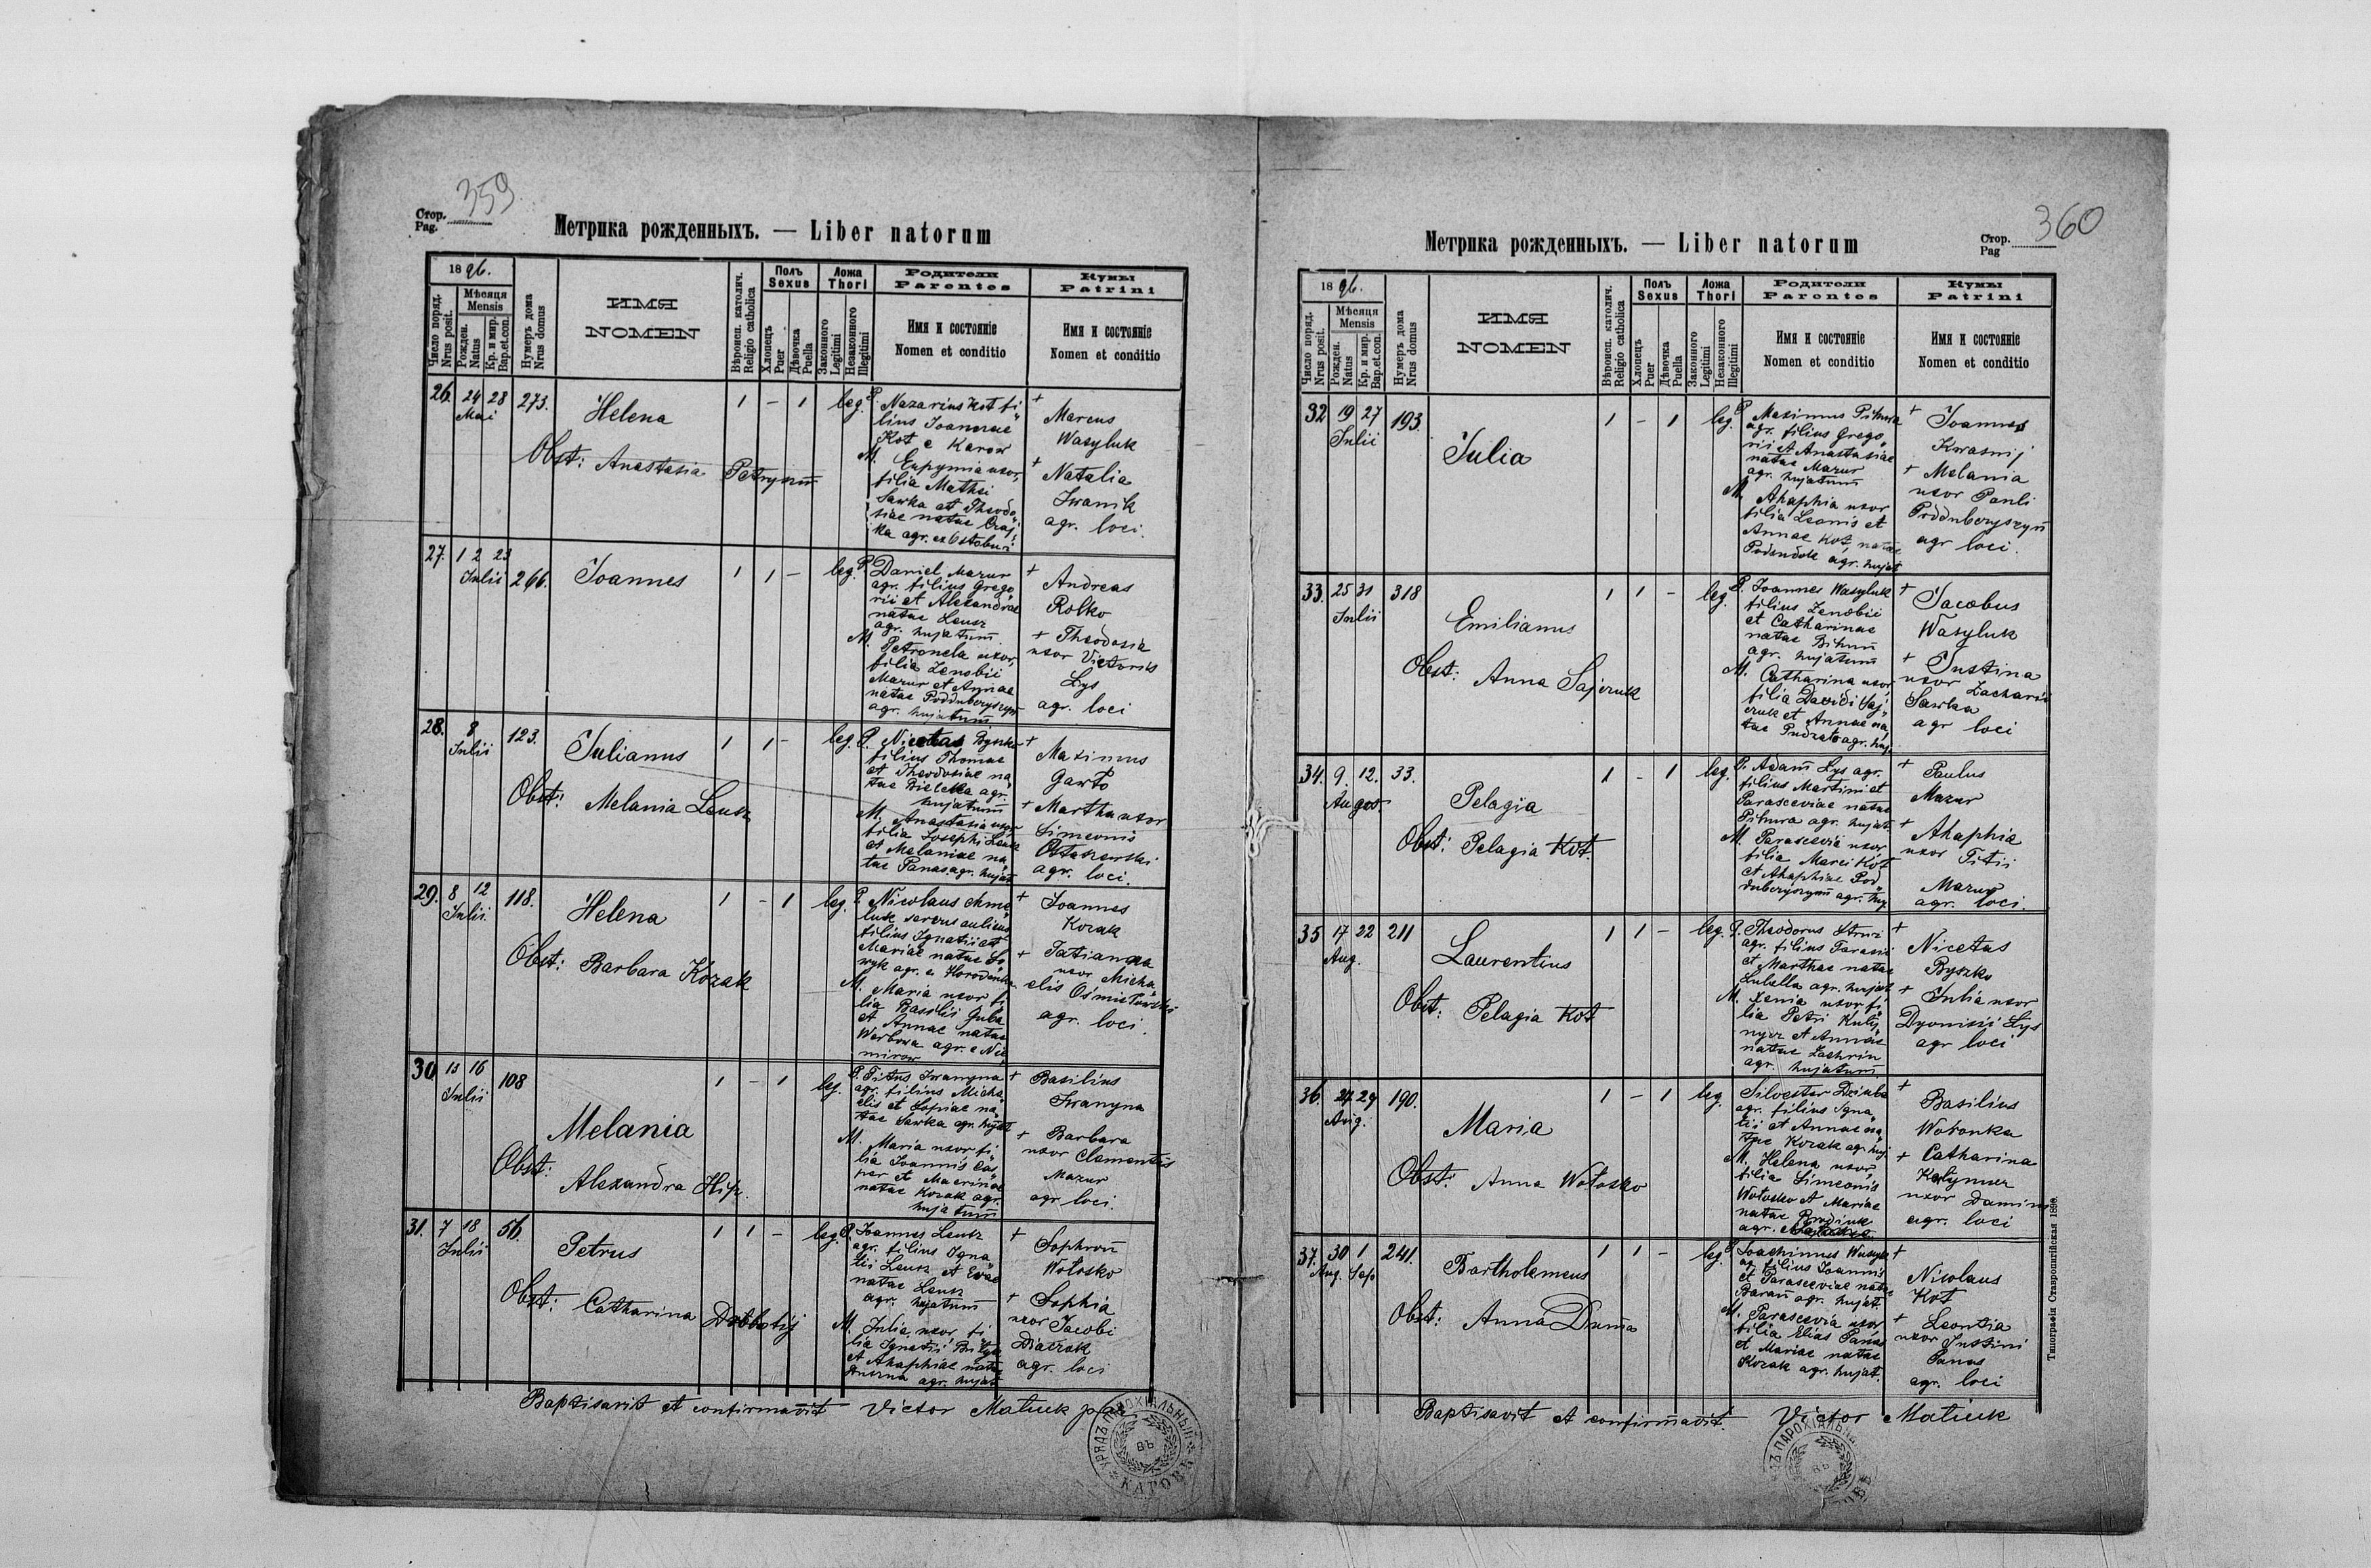 Стор.
Pag. 359
Метрика рожденныхъ. — Liber natorum
1896.
Число поряд.
Nrus posit.
Мѣсяця
Mensis
Рожден.
Natus
Кр. и мир.
Bap.et.con.
Нумеръ дома
Nrus domus
ИМЯ
NOMEN
Вѣроисп. католич.
Religio catholica
Полъ
Sexus
Хлопецъ
Puer
Дѣвочка
Puella
Ложа
Thori
Законного
Legitimi
Незаконного
Illegitimi
Родители
Parentes
Имя и состояніе
Nomen et conditio
Кумы
Patrini
Имя и состояніе
Nomen et conditio
26. 24 28 273. Helena 1 - 1 leg.
Mai
Obst: Anastasia
P. Nazarius Kot fi
lius Joannae
Kot e Karow
M. Euphymia uxor,
filia Mathei
Sawka et Theodo
siae natae
agr.
+ Marcus
Wasyluk
+ Natalia
Iwanik
agr. loci.
27. 1 2 23 266. Joannes 1 1 - leg.
Julii
P. Daniel Mazur
agr. filius Grego
rii et Alexandrae
natae Leusz
agr. hujatum
M. Petronela uxor,
filia Zenobii
Mazur et Annae
natae Podduberyszyn
agr. hujatum
+ Andreas
Rolko
+ Theodosia
uxor Victoris
Lys
agr. loci
28. 8 123. Julianus 1 1 - leg.
Julii
Obst: Melania Leusz
P. Nicetas Byszko
filius Thomae
et Theodosiae na
tae Bielecka agr.
hujatum
M. Anastasia uxor
filia Josephi Leusz
et Melaniae na
tae Panas agr. hujat
+ Maximus
Gawło
+ Martha uxor
Simeonis
Ostaszewski
agr. loci.
29. 8 12 118. Helena 1 - 1 leg.
Julii
Obst: Barbara Kozak
P. Nicolaus
filius Ignatii et
Mariae natae
agr. e Horodenka
M. Maria uxor fi
lia Basilii Guba
et Annae natae
Werbowa agr. e Nie
mirow
+ Joannes
Kozak
+ Tatianna
uxor Micha
elis
agr. loci.
30 13 16 108 Melania 1 - 1 leg.
Julii
Obst: Alexandra Hip.
P. Titus Iwanyna
agr. filius Micha
elis et Sophiae na
tae Sawka agr. hujat
M. Maria uxor, fi
lia Joannis Cas
per et Macrinae
natae Kozak agr.
hujatum
+ Basilius
Iwanyna
+ Barbara
uxor Clementis
Mazur
agr. loci.
31. 7 18 56. Petrus 1 1 - leg.
Julii
Obst: Catharina
P. Joannes Leusz
agr. filius Igna
tii Leusz et Evae
natae Leusz
agr. hujatum
M. Julia uxor, fi
lia Ignatii
et Ahaphiae natae
agr. hujat
+ Sophron
Wołosko
+ Sophia
uxor Jacobi
Diaczok
agr. loci
Baptisavit et confirmavit Victor Matiuk
УРЯДЪ ПАРОХІАЛЬНЫЙ
ВЪ
КАРОВѢ
Метрика рожденныхъ. — Liber natorum
Стор.
Pag 360
1896.
Число поряд.
Nrus posit.
Мѣсяця
Mensis
Рожден.
Natus
Кр. и мир.
Bap.et.con.
Нумеръ дома
Nrus domus
ИМЯ
NOMEN
Вѣроисп. католич.
Religio catholica
Полъ
Sexus
Хлопецъ
Puer
Дѣвочка
Puella
Ложа
Thori
Законного
Legitimi
Незаконного
Illegitimi
Родители
Parentes
Имя и состояніе
Nomen et conditio
Кумы
Patrini
Имя и состояніе
Nomen et conditio
32 19 27 193. Julia 1 - 1 leg.
Julii
P. Maximus Pihura
agr. filius Grego
rii et Anastasiae
natae Mazur
agr. hujatum
M. Ahaphia uxor
filia Leonis et
Annae Kot, natae
agr. hujat
+ Joannes
Kwasnij
+ Melania
uxor Pauli
Podduberyszyn
agr loci.
33. 25 31 318 Emilianus 1 1 - leg.
Julii
Obst: Anna Sajczuk
P. Joannes Wasyluk
filius Zenobii
et Catharinae
natae Bihun
agr. hujatum
M. Catharina uxor
filia Davidi Saj
czuk et Annae na
tae agr. huj.
+ Jacobus
Wasyluk
+ Justina
uxor Zachariae
Sawka
agr loci
34. 9. 12. 33. Pelagia 1 - 1 leg.
August.
Obst: Pelagia Kot.
P. Adam Lys agr.
filius Martini et
Parasceviae natae
Pihura agr. hujat.
M. Parascevia uxor
filia Marci Kot
et Ahaphiae Pod
duberyszyn agr. huj.
+ Paulus
Mazur
+ Ahaphia
uxor Titii
Mazur
agr. loci.
35 17 22 211 Laurentius 1 1 - leg.
Aug.
Obst: Pelagia Kot
P. Theodorus
agr. filius Tarasii
et Marthae natae
agr. hujat
M. Xenia uxor fi
lia Petri Kuly
nycz et Annae
natae
agr. hujatum
+ Nicetas
Byszko
+ Julia uxor
Dyonisii Lys
agr loci
36. 27 29 190. Maria 1 - 1 leg.
Aug.
Obst: Anna Wołosko
Silvester Dziuba
agr. filius Igna
tii et Annae na
tae Kozak agr. huj.
M. Helena uxor,
filia Simeonis
Wołosko et Mariae
natae
agr.
+ Basilius
Woronka
+ Catharina
uxor
agr. loci
37. 30 1 241. Bartholemeus 1 1 - leg.
Aug. Sep
Obst: Anna Duma
P. Joachimus Wasyluk
ag. filius Joannis
et Parasceviae natae
Baran agr. hujat.
M. Parascevia uxor
filia Eliae Panas
et Mariae natae
Kozak agr. hujat.
+ Nicolaus
Kot
+ Leontia
uxor Justini
Panas
agr. loci
Baptisavit et confirmavit. Victor Matiuk
Типографія Ставропигійская 1890.